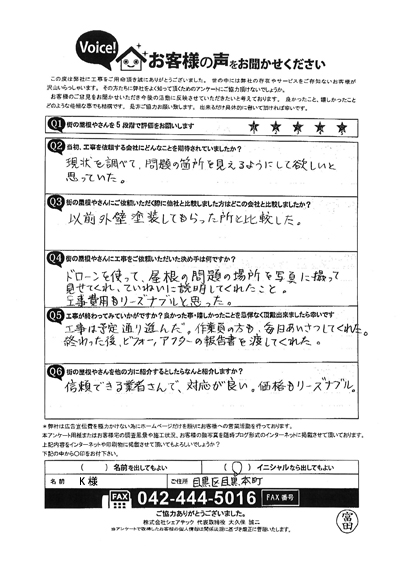 Voice!
お客様の声をお聞かせください
この度は弊社に工事をご用命頂き誠にありがとうございました。世の中には弊社の存在やサービスをご存知ないお客様が
沢山いらっしゃいます。その方たちに弊社をよく知って頂くためのアンケートにご協力頂けないでしょうか。
お客様のご意見をお聞かせいただき今後の活動に反映させていただきたいと考えております。良かったこと、嬉しかったこと
どのような些細な事でも結構です。是非ご協力お願い致します。出来るだけ具体的に書いて頂ければ幸いです。
Q1 街の屋根やさんを5段階で評価をお願いします ★ ★ ★ ★ ★
Q2 当初、工事を依頼する会社にどんなことを期待されていましたか?
現状を調べて、問題の箇所を見えるようにして欲しいと
思っていた。
Q3 街の屋根やさんにご依頼いただく際に他社と比較しました方はどこの会社と比較しましたか?
以前外壁塗装してもらった所と比較した。
Q4 街の屋根やさんに工事をご依頼いただいた決め手は何ですか?
ドローンを使って、屋根の問題の場所を写真に撮って
見せてくれ、ていねいに説明してくれたこと。
工事費用もリーズナブルと思った。
Q5 工事が終わってみていかがですか?良かった事・嬉しかったことを忌憚なく頂戴出来ましたら幸いです
工事は予定通り進んだ。作業員の方も、毎日あいさつしてくれた。
終わった後、ビフォー、アフターの報告書を渡してくれた。
Q6 街の屋根やさんを他の方に紹介するとしたらなんと紹介しますか?
信頼できる業者さんで、対応が良い。価格もリーズナブル。
*弊社は広告宣伝費を極力かけない為にホームページだけを頼りにお客様への営業活動を行っております。
本アンケート用紙またはお客様宅の調査風景や施工状況、お客様の顔写真を随時ブログ形式のインターネットに掲載させて頂いております。
上記内容をインターネットや印刷物に掲載させて頂いてもよろしいでしょうか?
下記の中から〇印をお付け下さい。
( ) 名前を出してもよい ( 〇 ) イニシャルなら出してもよい
名前 K様 ご住所 目黒区目黒本町
FAX 042-444-5016 FAX番号
ご協力ありがとうございました。
株式会社シェアテック 代表取締役 大久保 誠二
※アンケートで取得したお客様の個人情報は関係法規に基づき厳正に管理いたします。
富田